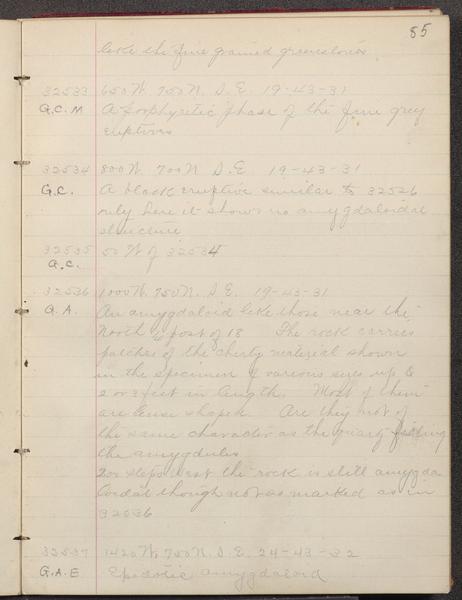 85
like the fine grained greenstones
32533 650 W. 700 N. S.E. 19-43-31
G.C.M A porphyritic phase of the fine grey
eruptives
32534 800 W. 700 N S.E. 19-43-31
G.C. A black eruptive similar to 32526
only here it shows no amygdaloidal
structure
32535 50 W of 32534
G.C.
32536 1000 W. 750 N. S.E. 19-43-31
G.A. An amygdaloid like those near the
North ¼ post of 18 The rock carries
patches of the cherty material shown
in the specimen of various sizes up to
2 or 3 feet in length. Most of them
are lense shaped. Are they not of
the same character as the quartz filling
the amygdules
200 steps west the rock is still amygda
loidal though not as marked as in
32536
32537 1420 W. 750 N. S.E. 24-43-32
G.A.E Epidotic amygdaloid